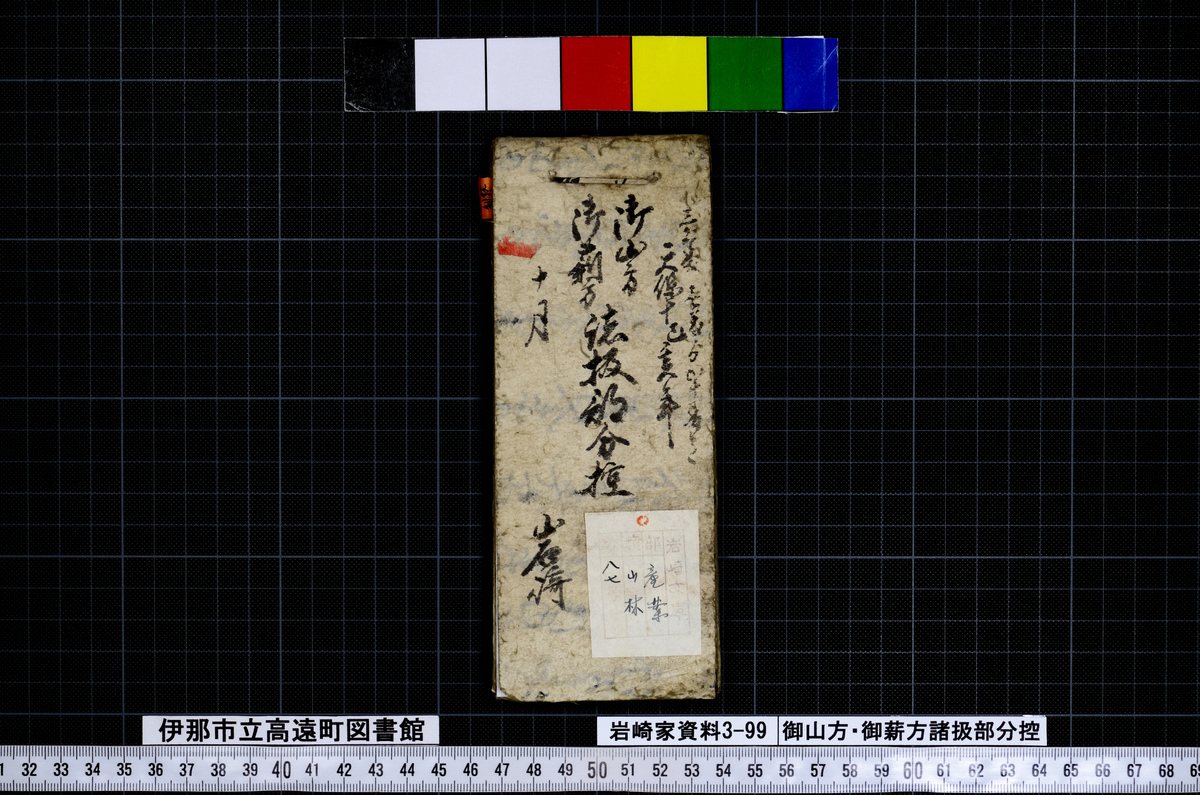 天保十己亥年
御山方
御薪方
諸扱部分控
十月
岩崎
岩崎
部
産業
山林
八七
伊那市立高遠町図書館
岩崎家資料3-99
御山方・御薪方諸扱部分控
1 32 33 34 35 36 37 38 39 40 41 42 43 44 45 46 47 48 49 50 51 52 53 54 55 56 57 58 59 60 61 62 63 64 65 66 67 68 69